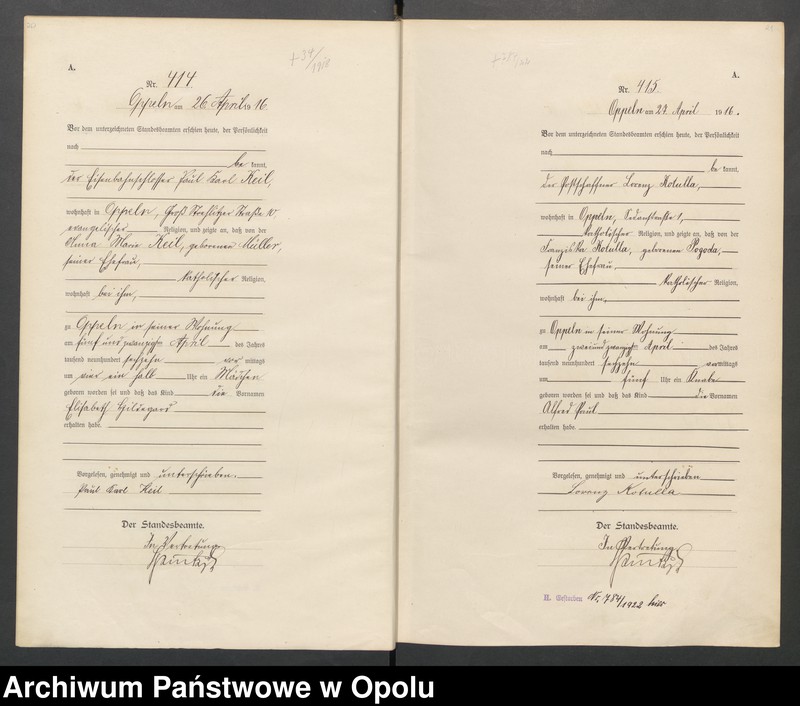 A.
Nr. 414
Oppeln am 26. April 1916
Vor dem unterzeichneten Standesbeamten erschien heute, der Persönlichkeit
nach
be kannt,
der Eisenbahnschlosser Paul Karl Keil,
wohnhaft in Oppeln, Groß Strehlitzer Straße 10,
evangelischer Religion, und zeigte an, daß von der
Anna Marie Keil, geborenen Müller,
seiner Ehefrau,
katholischer Religion,
wohnhaft bei ihm,
zu Oppeln in seiner Wohnung
am fünf und zwanzigsten April des Jahres
tausend neunhundert sechzehn vor mittags
um vier ein halb Uhr ein Mädchen
geboren worden sei und daß das Kind die Vornamen
Elisabeth Hildegard
erhalten habe.
Vorgelesen, genehmigt und unterschrieben.
Paul Karl Keil
Der Standesbeamte.
In Vertretung
A.
Nr. 415
Oppeln am 27. April 1916.
Vor dem unterzeichneten Standesbeamten erschien heute, der Persönlichkeit
nach
be kannt,
der Postschaffner Lorenz Kotulla,
wohnhaft in Oppeln, Sedanstraße 1,
katholischer Religion, und zeigte an, daß von der
Franziska Kotulla, geborenen Pogoda,
seiner Ehefrau,
katholischer Religion,
wohnhaft bei ihm,
zu Oppeln in seiner Wohnung
am zweiundzwanzigsten April des Jahres
tausend neunhundert sechzehn vormittags
um fünf Uhr ein Knabe
geboren worden sei und daß das Kind die Vornamen
Alfred Paul
erhalten habe.
Vorgelesen, genehmigt und unterschrieben
Lorenz Kotulla
Der Standesbeamte.
In Vertretung
H. Gestorben Nr. 784/1922 hier
Archiwum Państwowe w Opolu